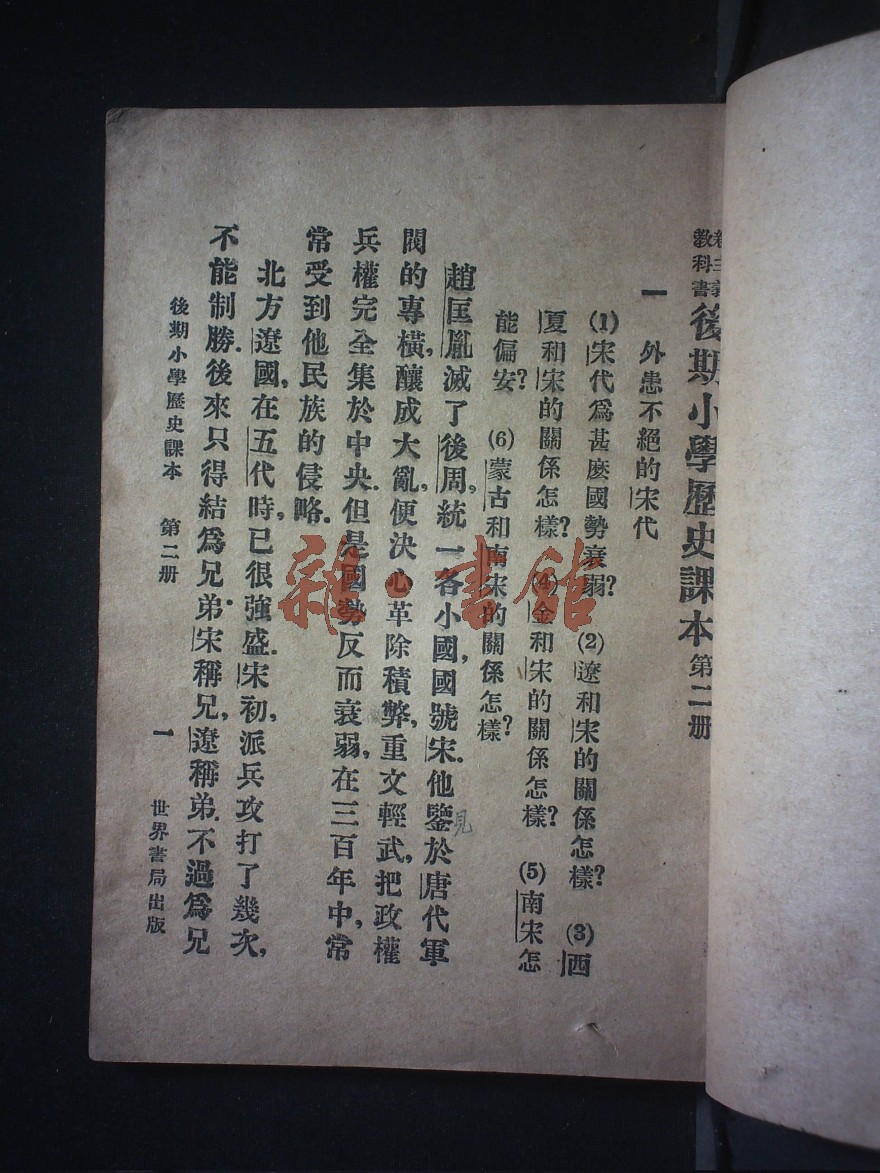 教科書
後期小學歷史課本第二册
一 外患不絕的宋代
(1)宋代爲甚麽國勢衰弱? (2)遼和宋的關係怎樣? (3)西
夏和宋的關係怎樣? (4)金和宋的關係怎樣? (5)南宋怎
能偏安? (6)蒙古和南宋的關係怎樣?
趙匡胤滅了後周,統一各小國,國號宋.他鑒於唐代軍
見
閥的專橫,釀成大亂,便決心革除積弊,重文輕武,把政權
兵權完全集於中央.但是國勢反而衰弱,在三百年中,常
常受到他民族的侵略.
北方遼國,在五代時,已很強盛.宋初,派兵攻打了幾次,
不能制勝.後來只得結爲兄弟:宋稱兄,遼稱弟.不過爲兄
後期小學歷史課本 第二册 一 世界書局出版
雜·書館